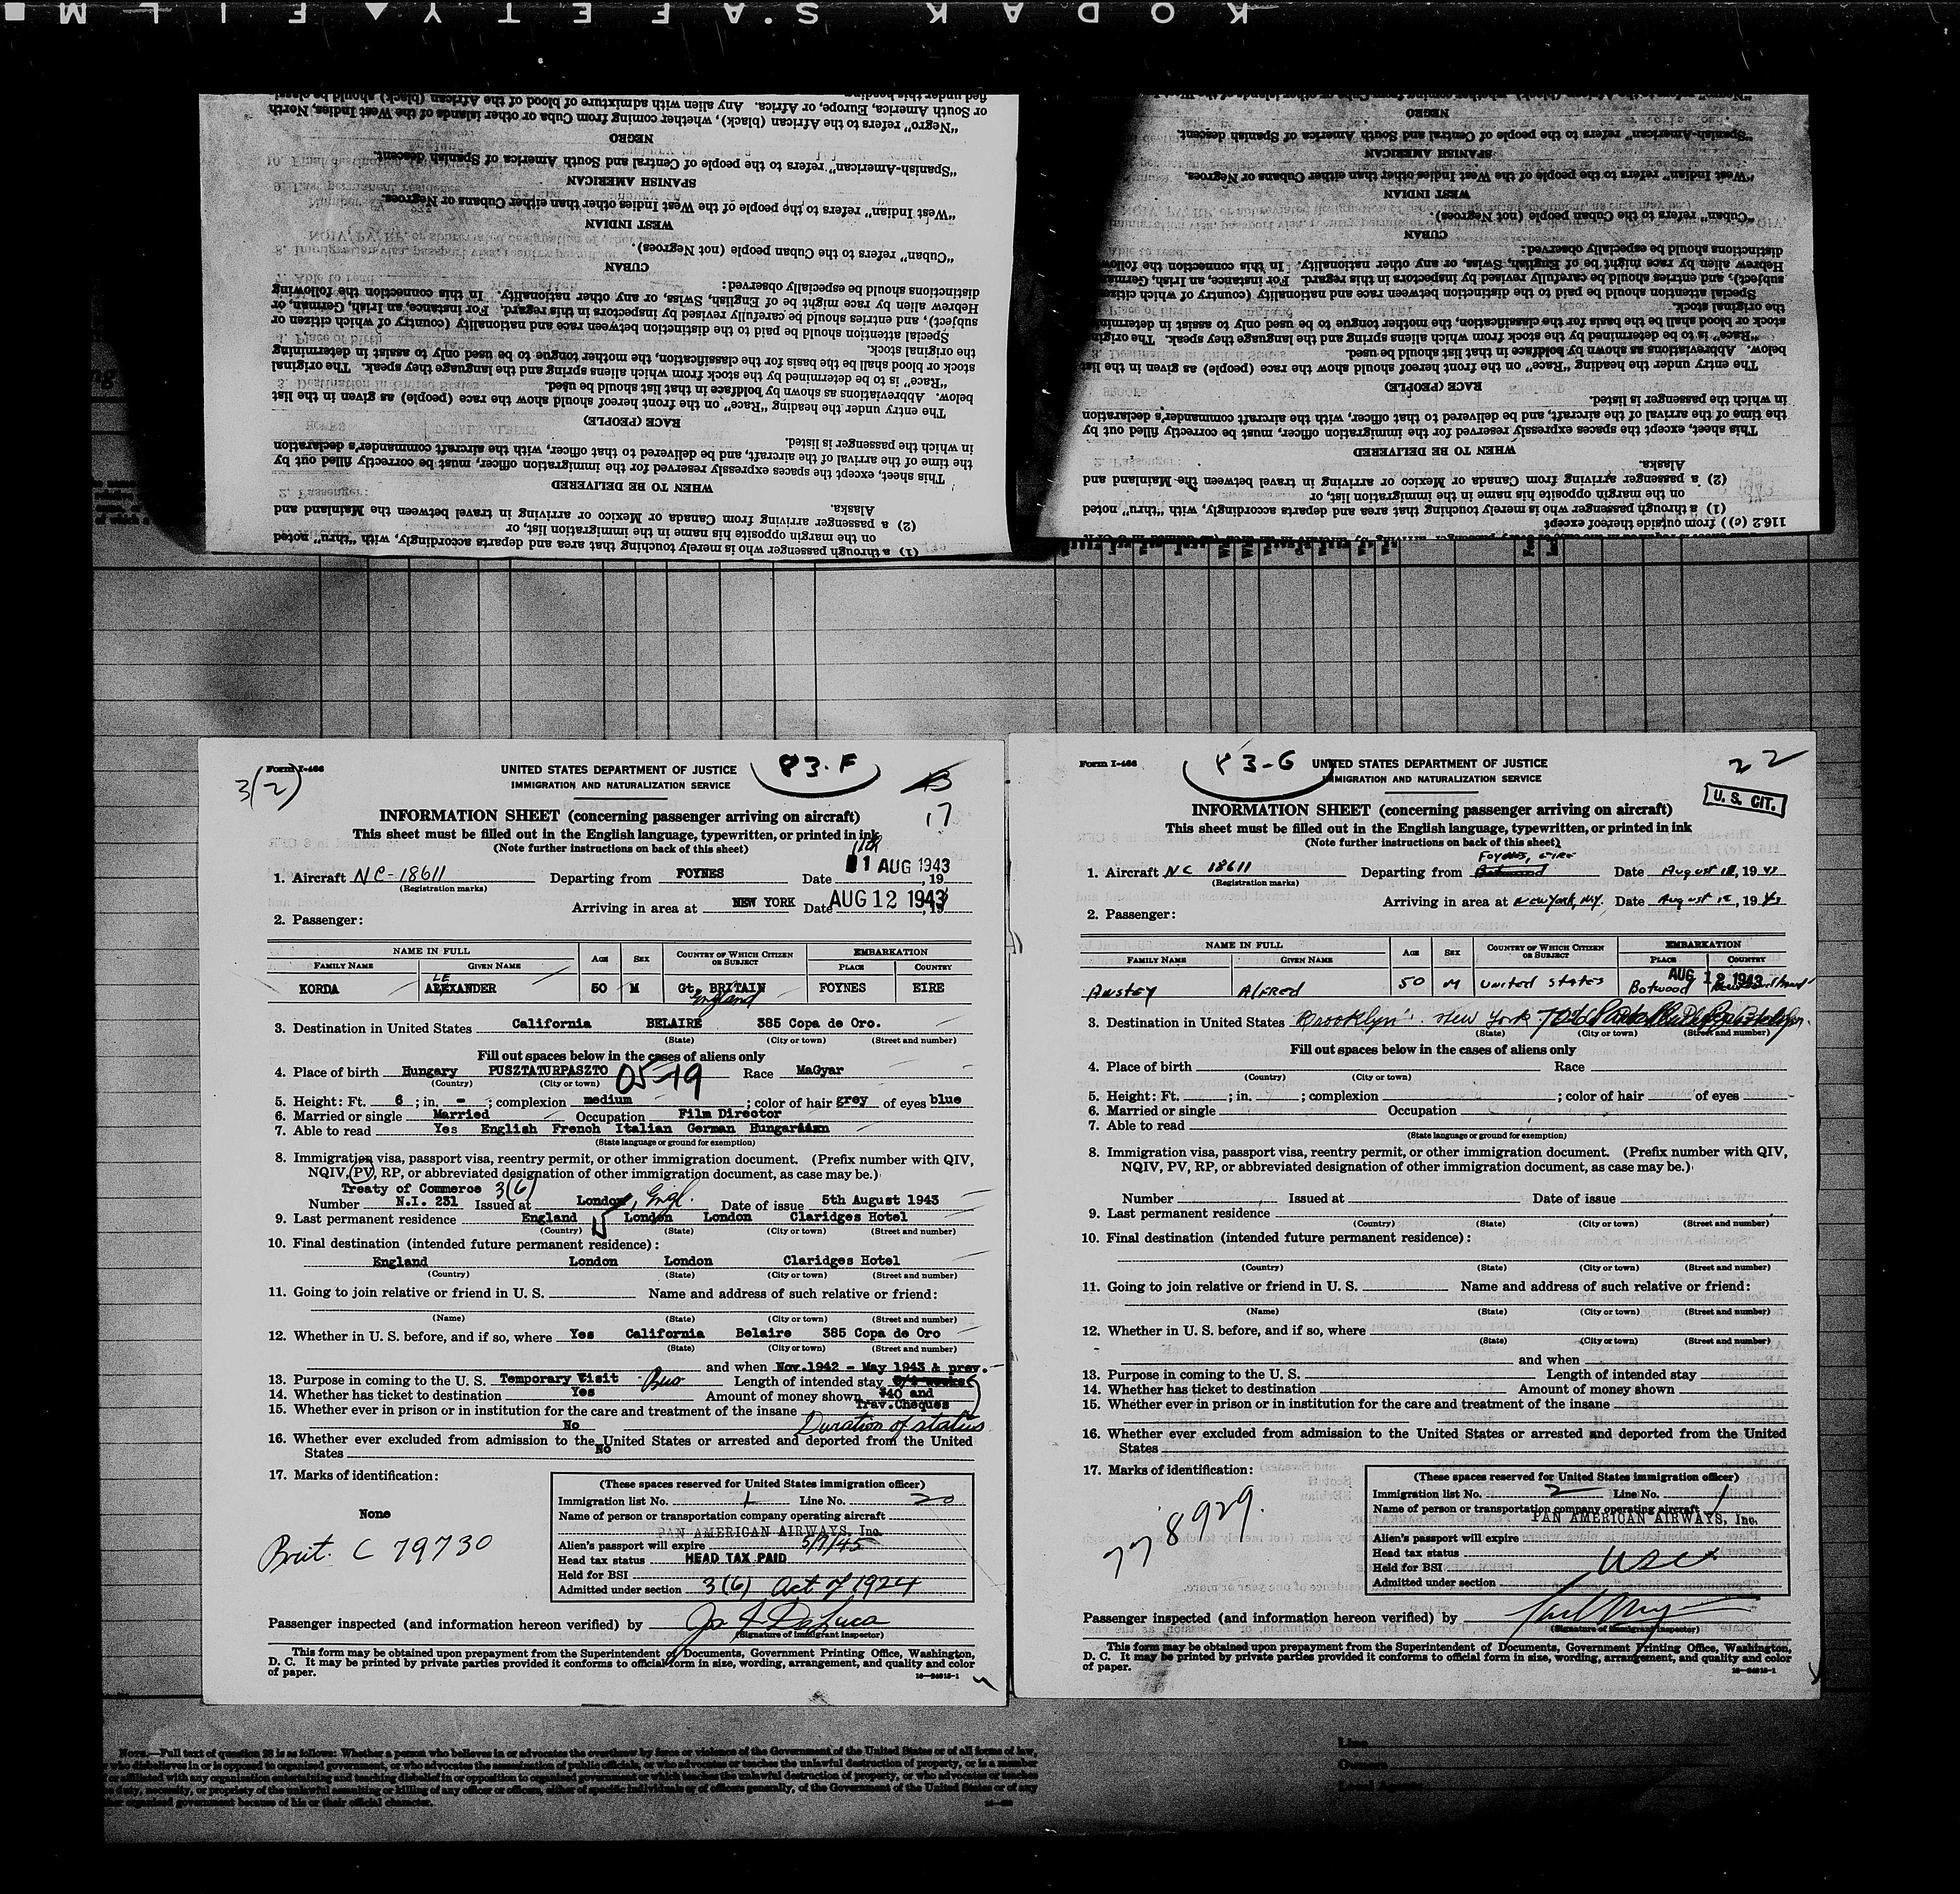 KODAK SAFETY FILM
fied under this heading
or South America, Europe, or Africa. Any alien with admixture of blood of the African (black) should be classi-
"Negro" refers to the African (black), whether coming from Cuba or other islands of the West Indies, North
NEGRO
"Spanish-American" refers to the people of Central and South America of Spanish descent.
SPANISH AMERICAN
"West Indian" refers to the people of the West Indies other than either Cubans or Negroes.
WEST INDIAN
"Cuban" refers to the Cuban people (not Negroes).
CUBAN
distinctions should be especially observed:
Hebrew alien by race might be of English, Swiss, or any other nationality. In this connection the following
subject), and entries should be carefully revised by inspectors in this regard. For instance, an Irish, German, or
Special attention should be paid to the distinction between race and nationality (country of which citizen or
the original stock.
stock or blood shall be the basis for the classification, the mother tongue to be used only to assist in determining
"Race" is to be determined by the stock from which aliens spring and the language they speak. The original
below. Abbreviations as shown by boldface in that list should be used.
The entry under the heading "Race" on the front hereof should show the race (people) as given in the list
RACE (PEOPLE)
in which the passenger is listed.
the time of the arrival of the aircraft, and be delivered to that officer, with the aircraft commander's declaration
This sheet, except the spaces expressly reserved for the immigration officer, must be correctly filled out by
WHEN TO BE DELIVERED
Alaska.
(2) a passenger arriving from Canada or Mexico or arriving in travel between the Mainland and
on the margin opposite his name in the immigration list, or
(1) a through passenger who is merely touching that area and departs accordingly, with "thru" noted
NEGRO
"Spanish-American" refers to the people of Central and South America of Spanish descent.
SPANISH AMERICAN
"West Indian" refers to the people of the West Indies other than either Cubans or Negroes.
WEST INDIAN
"Cuban" refers to the Cuban people (not Negroes).
CUBAN
distinctions should be especially observed:
Hebrew alien by race might be of English, Swiss, or any other nationality. In this connection the follow
subject), and entries should be carefully revised by inspectors in this regard. For instance, an Irish, German
Special attention should be paid to the distinction between race and nationality (country of which citizen
the original stock.
stock or blood shall be the basis for the classification, the mother tongue to be used only to assist in determin
"Race" is to be determined by the stock from which aliens spring and the language they speak. The origin
below. Abbreviations as shown by boldface in that list should be used.
The entry under the heading "Race" on the front hereof should show the race (people) as given in the list
RACE (PEOPLE)
in which the passenger is listed.
the time of the arrival of the aircraft, and be delivered to that officer, with the aircraft commander's declaration
This sheet, except the spaces expressly reserved for the immigration officer, must be correctly filled out by
WHEN TO BE DELIVERED
Alaska.
(2) a passenger arriving from Canada or Mexico or arriving in travel between the Mainland and
on the margin opposite his name in the immigration list, or
(1) a through passenger who is merely touching that area and departs accordingly, with "thru" noted
116.2 (c)) from outside thereof except
Form I-466
3(2)
83-F
17
UNITED STATES DEPARTMENT OF JUSTICE
IMMIGRATION AND NATURALIZATION SERVICE
INFORMATION SHEET (concerning passenger arriving on aircraft)
This sheet must be filled out in the English language, typewritten, or printed in ink
(Note further instructions on back of this sheet)
11th
1. Aircraft NC-18611 Departing from FOYNES Date 11 AUG 1943, 19
(Registration marks)
Arriving in area at NEW YORK Date AUG 12 1943, 19
2. Passenger:
NAME IN FULL AGE SEX COUNTRY OF WHICH CITIZEN OR SUBJECT EMBARKATION
FAMILY NAME GIVEN NAME PLACE COUNTRY
KORDA ALEXANDER 50 M Gt. BRITAIN FOYNES EIRE
England
3. Destination in United States California BELAIRE 385 Copa de Oro.
(State) (City or town) (Street and number)
Fill out spaces below in the cases of aliens only
4. Place of birth Hungary PUSZTATURPASZTO 05-19 Race MaGyar
(Country) (City or town)
5. Height: Ft. 6 ; in. - ; complexion medium ; color of hair grey of eyes blue
6. Married or single Married Occupation Film Director
7. Able to read Yes English French Italian German Hungarian
(State language or ground for exemption)
8. Immigration visa, passport visa, reentry permit, or other immigration document. (Prefix number with QIV,
NQIV, PV, RP, or abbreviated designation of other immigration document, as case may be.)
Treaty of Commerce 3(6)
Number N.I. 231 Issued at London, Engl. Date of issue 5th August 1943
9. Last permanent residence England London London Claridges Hotel
(Country) (State) (City or town) (Street and number)
10. Final destination (intended future permanent residence):
England London London Claridges Hotel
(Country) (State) (City or town) (Street and number)
11. Going to join relative or friend in U. S. Name and address of such relative or friend:
(Name) (State) (City or town) (Street and number)
12. Whether in U. S. before, and if so, where Yes California Belaire 385 Copa de Oro
(State) (City or town) (Street and number)
and when Nov.1942 - May 1943 & prev.
13. Purpose in coming to the U. S. Temporary Visit - Bus Length of intended stay
14. Whether has ticket to destination Yes Amount of money shown $40 and
Trav.Cheques
15. Whether ever in prison or in institution for the care and treatment of the insane
No Duration of status
16. Whether ever excluded from admission to the United States or arrested and deported from the United
States No
17. Marks of identification:
None
Brit. C 79730
(These spaces reserved for United States immigration officer)
Immigration list No. 1 Line No. 20
Name of person or transportation company operating aircraft
PAN AMERICAN AIRWAYS, Inc.
Alien's passport will expire 5/7/45
Head tax status HEAD TAX PAID
Held for BSI
Admitted under section 3(6) Act of 1924
Passenger inspected (and information hereon verified) by
(Signature of immigrant inspector)
This form may be obtained upon prepayment from the Superintendent of Documents, Government Printing Office, Washington,
D. C. It may be printed by private parties provided it conforms to official form in size, wording, arrangement, and quality and color
of paper.
Form I-466
83-G
22
U. S. CIT.
UNITED STATES DEPARTMENT OF JUSTICE
IMMIGRATION AND NATURALIZATION SERVICE
INFORMATION SHEET (concerning passenger arriving on aircraft)
This sheet must be filled out in the English language, typewritten, or printed in ink
(Note further instructions on back of this sheet)
Foynes, Eire
1. Aircraft NC 18611 Departing from Botwood Date August 11, 1943
(Registration marks)
Arriving in area at New York, N.Y. Date August 12, 1943
2. Passenger:
NAME IN FULL AGE SEX COUNTRY OF WHICH CITIZEN OR SUBJECT EMBARKATION
FAMILY NAME GIVEN NAME PLACE COUNTRY
AUG 12 1943
Anstey Alfred 50 M United States Botwood Newfoundland
3. Destination in United States Brooklyn New York
(State) (City or town) (Street and number)
Fill out spaces below in the cases of aliens only
4. Place of birth Race
(Country) (City or town)
5. Height: Ft. ; in. ; complexion ; color of hair of eyes
6. Married or single Occupation
7. Able to read
(State language or ground for exemption)
8. Immigration visa, passport visa, reentry permit, or other immigration document. (Prefix number with QIV,
NQIV, PV, RP, or abbreviated designation of other immigration document, as case may be.)
Number Issued at Date of issue
9. Last permanent residence
(Country) (State) (City or town) (Street and number)
10. Final destination (intended future permanent residence):
(Country) (State) (City or town) (Street and number)
11. Going to join relative or friend in U. S. Name and address of such relative or friend:
(Name) (State) (City or town) (Street and number)
12. Whether in U. S. before, and if so, where
(State) (City or town) (Street and number)
and when
13. Purpose in coming to the U. S. Length of intended stay
14. Whether has ticket to destination Amount of money shown
15. Whether ever in prison or in institution for the care and treatment of the insane
16. Whether ever excluded from admission to the United States or arrested and deported from the United
States
17. Marks of identification:
778929.
(These spaces reserved for United States immigration officer)
Immigration list No. 2 Line No. 1
Name of person or transportation company operating aircraft
PAN AMERICAN AIRWAYS, Inc.
Alien's passport will expire
Head tax status
Held for BSI USC
Admitted under section
Passenger inspected (and information hereon verified) by
(Signature of immigrant inspector)
This form may be obtained upon prepayment from the Superintendent of Documents, Government Printing Office, Washington,
D. C. It may be printed by private parties provided it conforms to official form in size, wording, arrangement, and quality and color
of paper.
NOTE.—Full text of question 28 is as follows: Whether a person who believes in or advocates the overthrow by force or violence of the Government of the United States or of all forms of law,
who disbelieves in or is opposed to organized government, or who advocates the assassination of public officials, or who advocates or teaches the unlawful destruction of property, or is a member
with any organization entertaining and teaching disbelief in or opposition to organized government or which teaches the unlawful destruction of property, or who advocates or teaches
duty, necessity, or propriety of the unlawful assaulting or killing of any officer or officers, either of specific individuals or of officers generally, of the Government of the United States or of any
organized government because of his or their official character.
Line
Owners
Local Agents